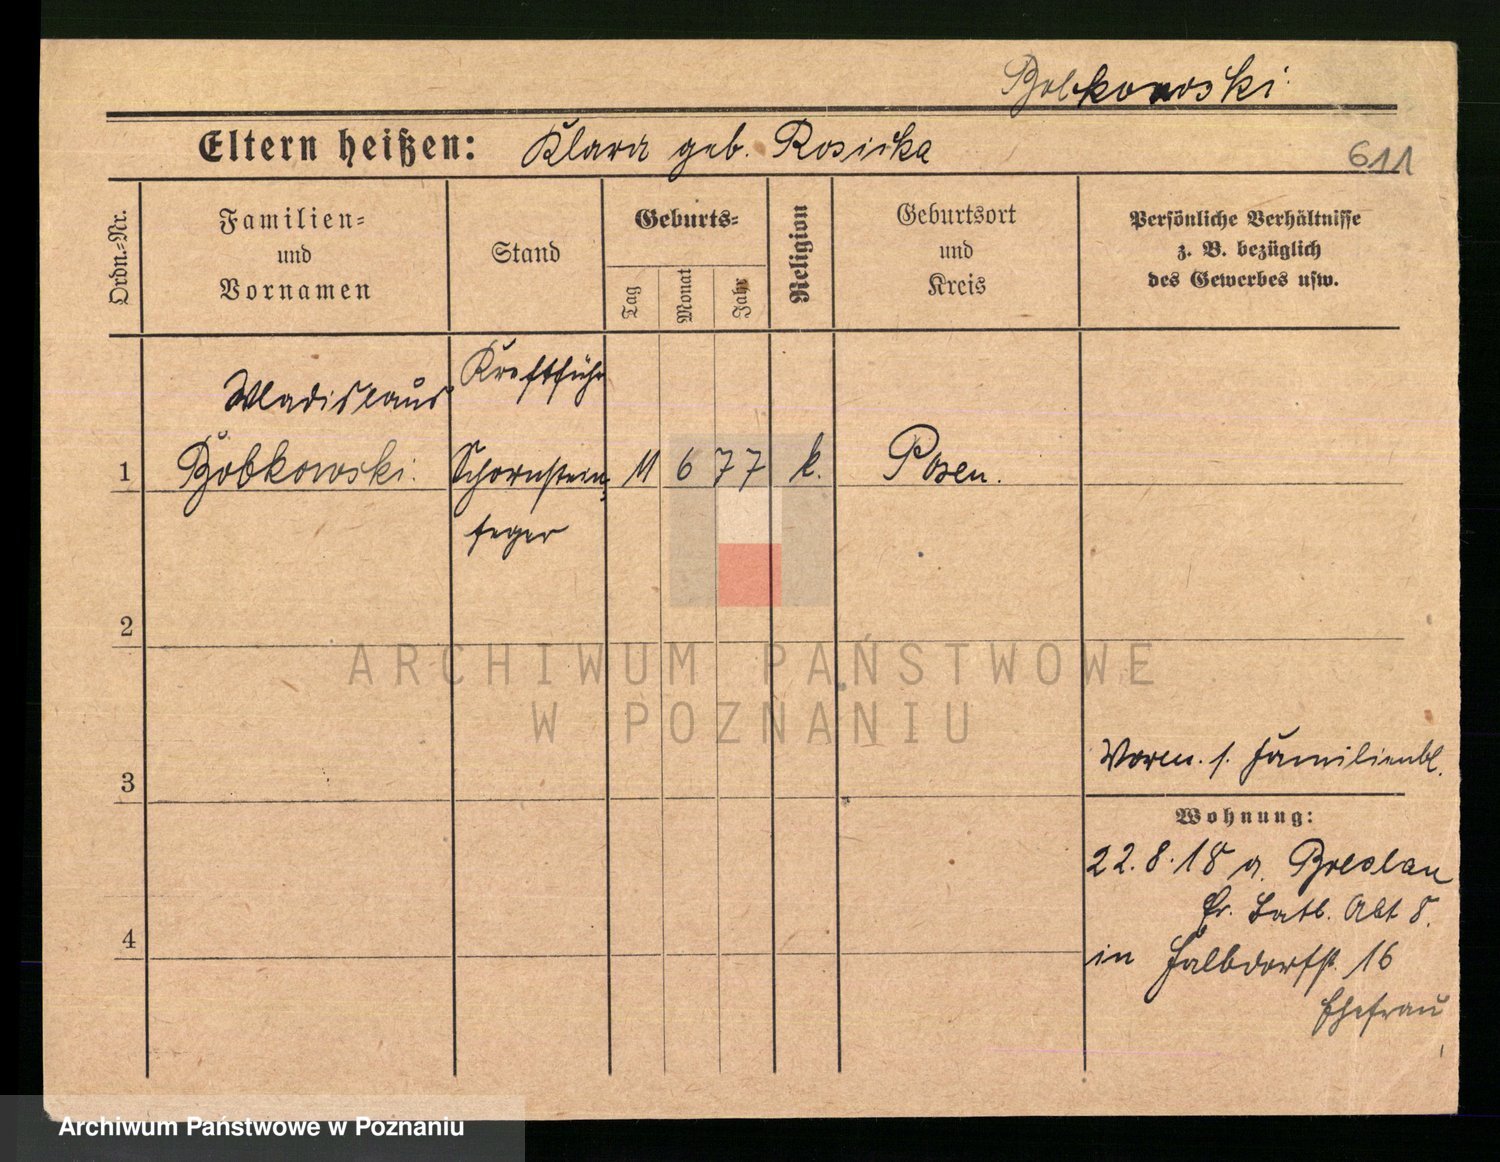 Bobkowski.
Eltern heißen: Klara geb. Rosicka
611
Ordn.-Nr.
Familien-
und
Vornamen
Stand
Geburts-
Tag
Monat
Jahr
Religion
Geburtsort
und
Kreis
Persönliche Verhältnisse
z. B. bezüglich
des Gewerbes usw.
Wladislaus
Kraftführ
1 Bobkowski. Schornstein- 11 6 77 k. Posen.
feger
2
ARCHIWUM PAŃSTWOWE
W POZNANIU
Vorm. s. Familienbl.
3
Wohnung:
22.8.18 a. Breslau
Er. Batl. Abt 8.
4
in Halbdorfst. 16
Ehefrau
Archiwum Państwowe w Poznaniu